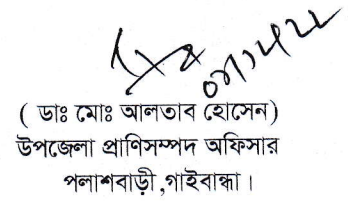 ( ডাঃ মোঃ আলতাব হোসেন)
উপজেলা প্রাণিসম্পদ অফিসার
পলাশবাড়ী,গাইবান্ধা।